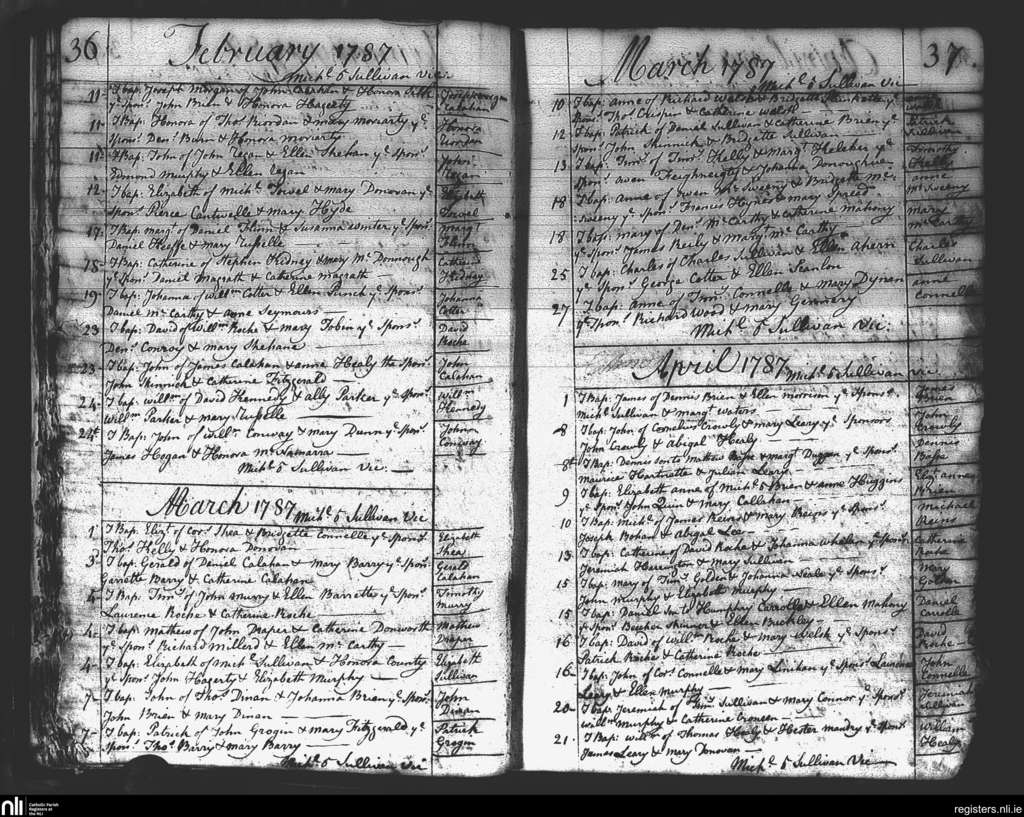 36
February 1787
Mich.l ó Sullivan Vic.
11 I bap: Joseph Morgan of John Calahan & Honora
y.e Spon.rs John Brien & Honora Hagerty
Joseph Morgan
Calahan
11 I Bap: Honora of Tho.s Riordan & Mary Moriarty y.e
Spon.rs Den.s Burn & Honora Moriarty
Honora
Riordan
11 I Bap: John of John Regan & Ellen Shehan y.e Spon.rs
Edmond Murphy & Ellen Eagan
John
Regan
12 I Bap: Elizabeth of Mich.l Powel & Mary Donovan y.e
Spon.rs Pierce Cantwelle & Mary Hyde
Elizabeth
Powel
17 I Bap: Marg.t of Daniel Flinn & Susanna Winter y.e Spon.rs
Daniel Keeffe & Mary Russelle
Marg.t
Flinn
18 I Bap: Catherine of Stephen Kidney & Mary M.c Donnough
y.e Spon.rs Daniel Magrath & Catherine Magrath
Catherine
Kidney
19 I bap: Johanna of Will.m Cotter & Ellen Punch y.e Spon.rs
Daniel M.c Carthy & Anne Seymours
Johanna
Cotter
23 I bap: David of Will.m Roche & Mary Tobin y.e Spon.rs
Den.s Conroy & Mary Shehane
David
Roche
23 I bap: John of James Calahan & Anne Healy the Spon.rs
John Skinnick & Catherine Fitzgerald
John
Calahan
24 I bap: Will.m of David Kennedy & Ally Parker y.e Spon.rs
Will.m Parker & Mary Russelle
Will.m
Kennedy
24 I Bap: John of Will.m Conway & Mary Dunn y.e Spon.rs
James Hogan & Honora M.c Namarra
John
Conway
Mich.l ó Sullivan Vic.
March 1787
Mich.l ó Sullivan Vic
1 I Bap: Eliz.t of Cor.s Shea & Bridgette Connelle y.e Spon.rs
Tho.s Kelly & Honora Donovan
Elizabeth
Shea
3 I bap: Gerald of Daniel Calahan & Mary Barry y.e Spon.rs
Garrette Barry & Catherine Calahan
Gerald
Calahan
I Bap: Tim.y of John Murry & Ellen Barrette y.e Spon.rs
Laurence Roche & Catherine Roche
Timothy
Murry
4 I bap: Mathew of John Draper & Catherine Donworth
y.e Spon.rs Richard Millerd & Ellen M.c Carthy
Mathew
Draper
4 I bap: Elizabeth of Mich.l Sullivan & Honora County
y.e Spon.rs John Hagerty & Elizabeth Murphy
Elizabeth
Sullivan
7 I bap: John of Tho.s Dinan & Johanna Brien y.e Spon.rs
John Brien & Mary Dinan
John
Dinan
7 I bap: Patrick of John Grogin & Mary Fitzgerald y.e
Spon.rs Tho.s Barry & Mary Barry
Patrick
Grogin
Mich.l ó Sullivan Vic
37
March 1787
Mich.l ó Sullivan Vic
10 I bap: Anne of Richard Walsh & Bridgette
Spon.rs Tho.s Crispin & Catherine Walsh
12 I bap: Patrick of Daniel Sullivan & Catherine Brien y.e
Spon.rs John Skinnick & Bridgette Sullivan
Patrick
Sullivan
13 I bap: Tim.y of Tim.y Kelly & Marg.t Keleher y.e
Spon.rs Owen & Johanna Donoughue
Timothy
Kelly
18 I bap: Anne of Owen M.c Sweeny & Bridgette M.c
Sweeny y.e Spon.rs Francis Hynes & Mary Speed
Anne
M.c Sweeny
18 I bap: Mary of Den.s M.c Carthy & Catherine Mahony
y.e Spon.rs James Reily & Mary M.c Carthy
Mary
M.c Carthy
25 I bap: Charles of Charles Sullivan & Ellen Ahern
y.e Spon.rs George Cotter & Ellen Scanlon
Charles
Sullivan
27 I bap: Anne of Tim.y Connelle & Mary Dynan
y.e Spon.rs Richard Wood & Mary Gennery
Anne
Connelle
Mich.l ó Sullivan Vic.
April 1787
Mich.l ó Sullivan Vic.
1 I Bap: James of Dennis Brien & Ellen Morrison y.e Spon.rs
Mich.l Sullivan & Marg.t Waters
James
Brien
8 I bap: John of Cornelius Crowly & Mary Leary y.e Sponsors
John Crowly & Abigal Healy
John
Crowly
8 I Bap: Dennis son to Mathew Busse & Marg.t Duggan y.e Spon.rs
Maurice Hartnette & Julian Leary
Dennis
Busse
9 I bap: Elizabeth Anne of Mich.l ó Brien & Anne Huggins
y.e Spon.rs John Quin & Mary Callahan
Eliz.t Anne
ó Brien
10 I Bap: Mich.l of James Reins & Mary Reins y.e Spon.rs
Joseph Bohan & Abigal Lee
Michael
Reins
13 I bap: Catherine of David Roche & Johanna Whelan y.e Spon.rs
Jeremiah Harrington & Mary Sullivan
Catherine
Roche
15 I bap: Mary of Tim.y Golden & Johanna Neale y.e Spon.rs
John Murphy & Elizabeth Murphy
Mary
Golden
15 I bap: Daniel Son to Humphry Carrolle & Ellen Mahony
y.e Spon.rs Beecher Skinner & Ellen Buckley
Daniel
Carrolle
16 I bap: David of Will.m Roche & Mary Welsh y.e Spon.rs
Patrick Roche & Catherine Roche
David
Roche
16 I bap: John of Cor.s Connelle & Mary Linihan y.e Spon.rs Laurence
Leary & Ellen Murphy
John
Connelle
20 I bap: Jeremiah of Tim.y Sullivan & Mary Connor y.e Spon.rs
Will.m Murphy & Catherine Croneen
Jeremiah
Sullivan
21 I Bap: Will.m of Thomas Healy & Hester Mandry y.e Spon.rs
James Leary & Mary Donovan
William
Healy
Mich.l ó Sullivan Vic
nli
Catholic Parish
Registers at
the NLI
registers.nli.ie